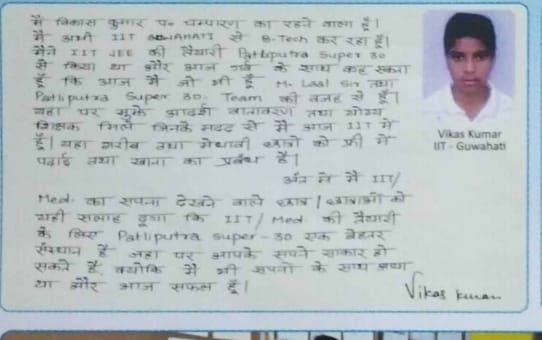 मैं विकास कुमार प० चम्पारण का रहने वाला हूँ।
मैं अभी IIT GUWAHATI से B-Tech कर रहा हूँ।
मैंने IIT JEE की तैयारी Patliputra Super 30
से किया था और आज गर्व के साथ कह सकता
हूँ कि आज मैं जो भी हूँ M. Laal Sir तथा
Patliputra Super 30. Team की वजह से हूँ।
यहा पर मुझे आदर्श वातावरण तथा योग्य
शिक्षक मिले जिनके मदद से मैं आज IIT में
हूँ। यहा गरीब तथा मेधावी छात्रों को फ्री में
पढाई तथा खाना का प्रबंध है।
अंत मे मैं IIT/
Med. का सपना देखने वाले छात्र/छात्राओं को
यही सलाह दूगा कि IIT/Med. की तैयारी
के लिए Patliputra super-30 एक बेहतर
संस्थान है जहा पर आपके सपने साकार हो
सकते हैं, क्योकि मैं भी सपनो के साथ आया
था और आज सफल हूँ।
Vikas Kumar
Vikas Kumar
IIT - Guwahati